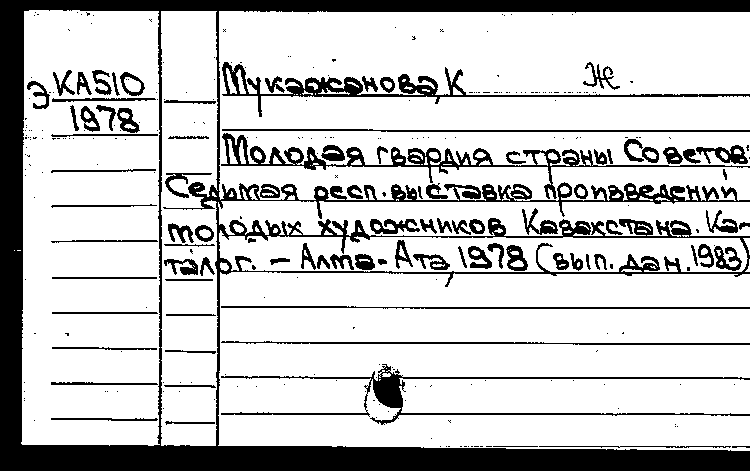 Э KA510
1978
Мукажанова, К Ж.
Молодая гвардия страны Советов:
Седьмая респ. выставка произведений
молодых художников Казахстана. Ка-
талог. – Алма-Ата, 1978 (вып. дан. 1983)